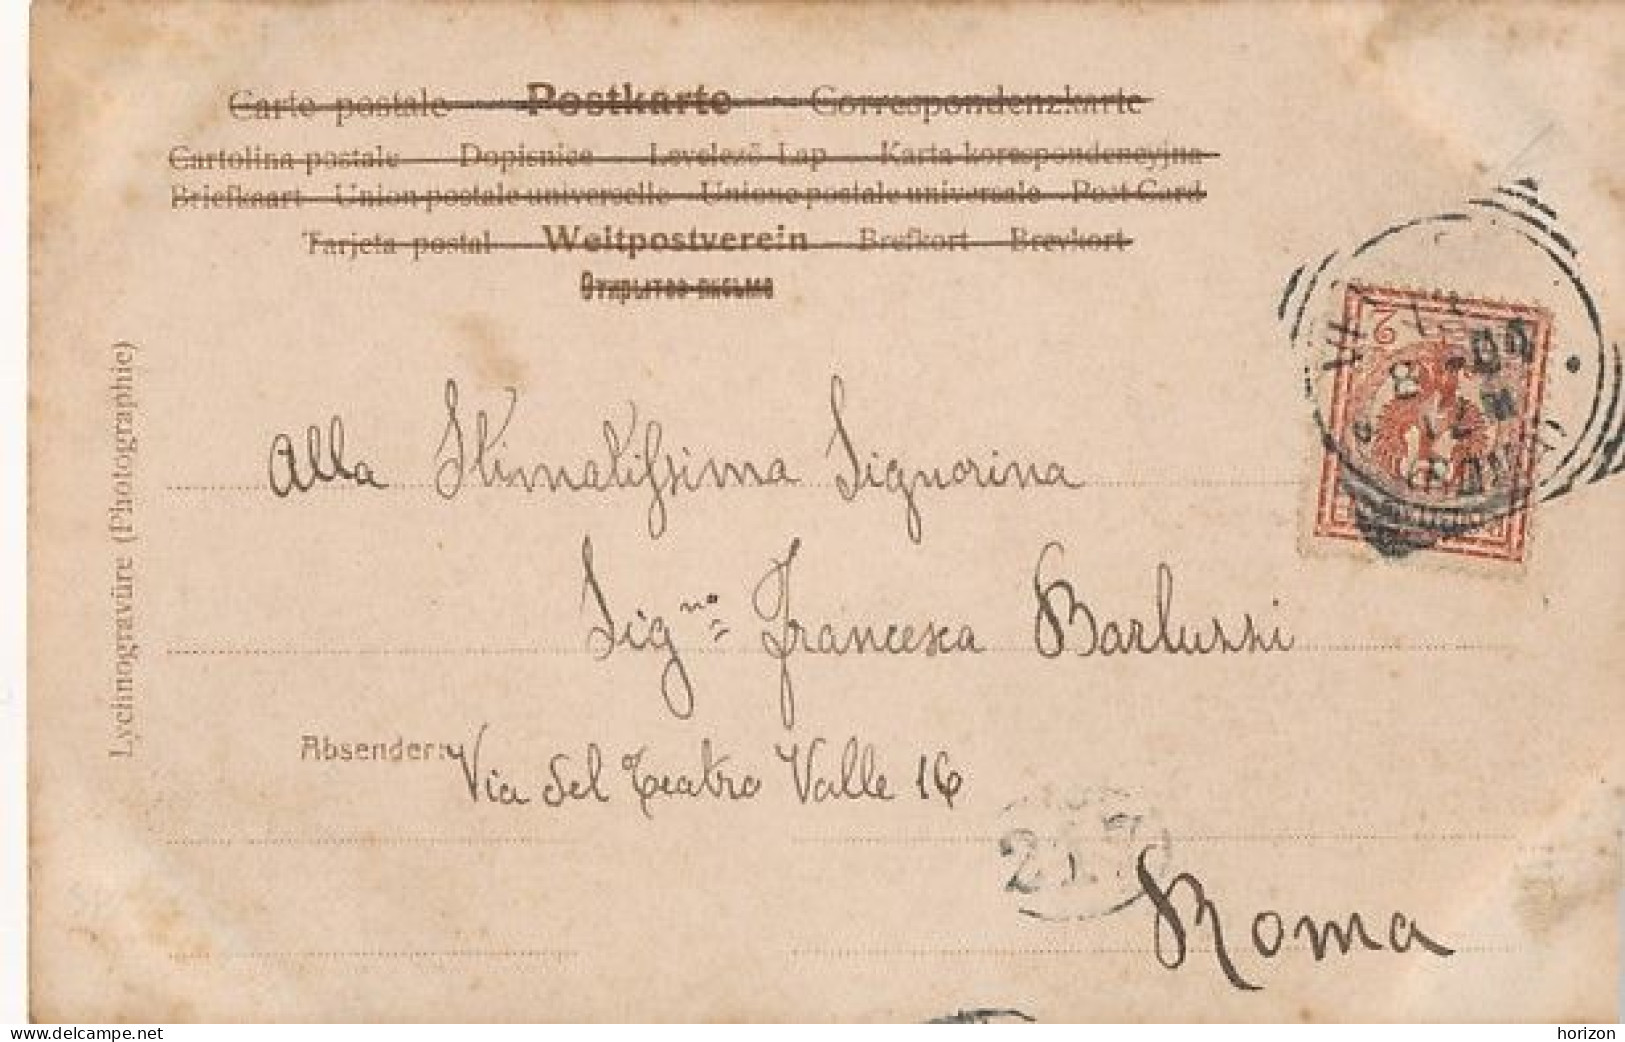 Carte postale — Postkarte — Correspondenzkarte
Cartolina postale — Dopisnice — Levelező-Lap — Karta korespondencyjna
Briefkaart — Union postale universelle — Unione postale universale — Post Card
Tarjeta postal — Weltpostverein — Brefkort — Brevkort
Открытое письмо
Lychnogravüre (Photographie)
Alla Stimatissima Signorina
Sig.na Francesca Barluzzi
Absender:
Via del Teatro Valle 16
Roma
2
8
(ROMA)
delcampe.net
horizon